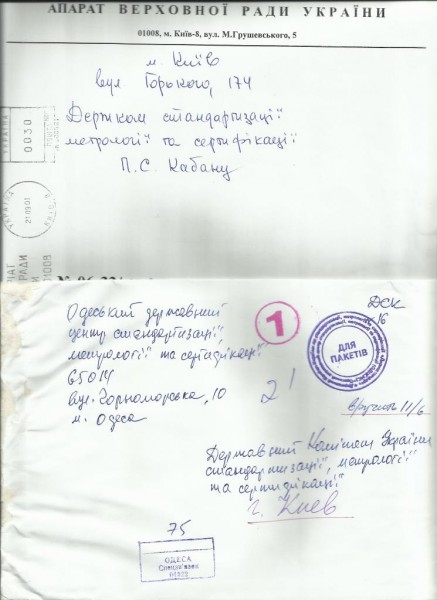 АПАРАТ ВЕРХОВНОЇ РАДИ УКРАЇНИ
01008, м. Київ-8, вул. М.Грушевського, 5
м. Київ
вул Горького, 174
Держком стандартизації
метрології та сертифікації
П.С. Кабану
УКРАЇНА
0030
УКРАЇНА
21.03.01
РАДИ
01008
Одеський державний
центр стандартизації,
метрології та сертифікації
65014
вул. Чорноморська, 10
м. Одеса
1
2
ДСК
16
ДЛЯ
ПАКЕТІВ
вручить 11/6
Державний Комітет України
стандартизації, метрології
та сертифікації
г. Киев
75
ОДЕСА
Спецзв'язок